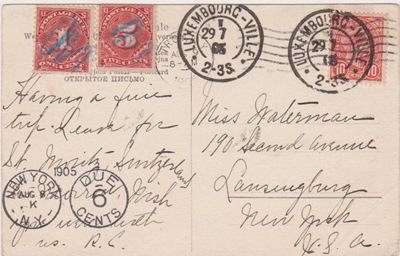 ONE CENT
FIVE CENTS
5
10
10
LUXEMBOURG-VILLE
29 7
05
2-3S.
LUXEMBOURG-VILLE
29 7
2-3S.
ОТКРЫТОЕ ПИСЬМО
Having a fine
trip. Leave for
St. Moritz, Switzerland
wish
you were with
us. R.C.
Miss Waterman
190 Second Avenue
Lansingburg
New York
U.S.A.
NEW YORK
AUG 8
K
N.Y.
1905
DUE
6
CENTS